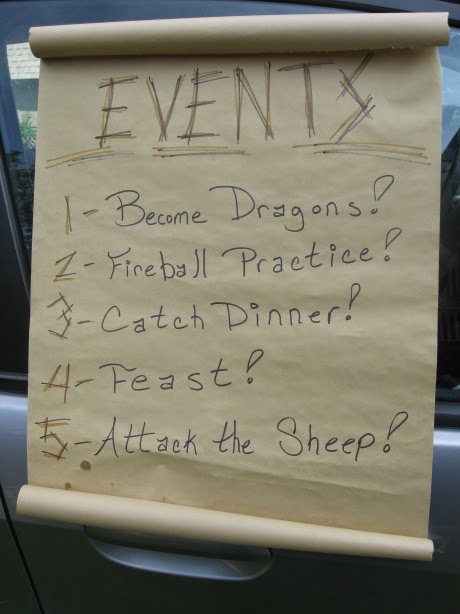 EVENTS
1- Become Dragons!
2- Fireball Practice!
3- Catch Dinner!
4- Feast!
5- Attack the Sheep!